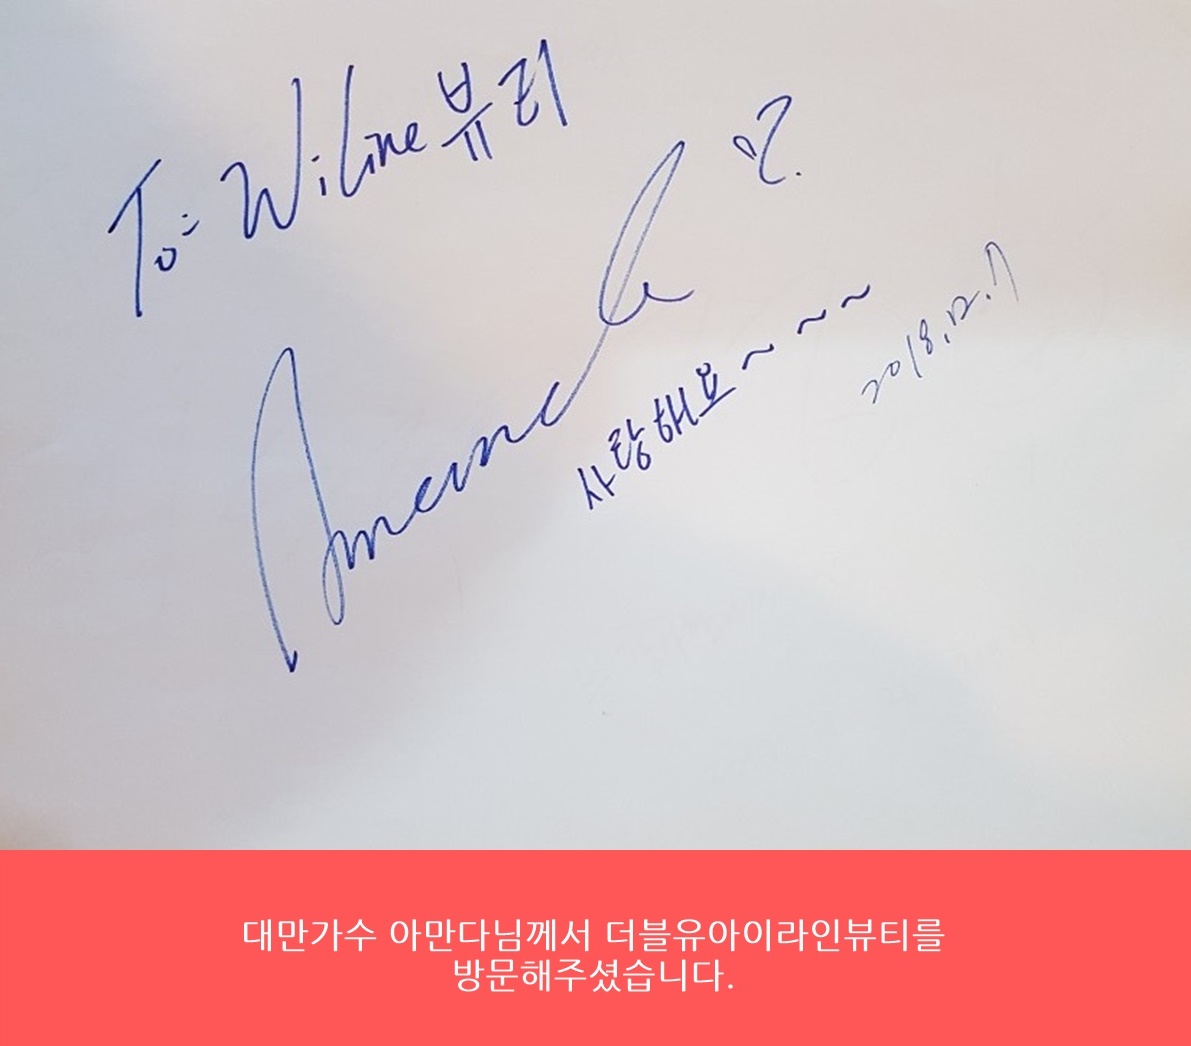 To: Wiline뷰티
Amanda
사랑해요~~~
2018.12.7
대만가수 아만다님께서 더블유아이라인뷰티를
방문해주셨습니다.